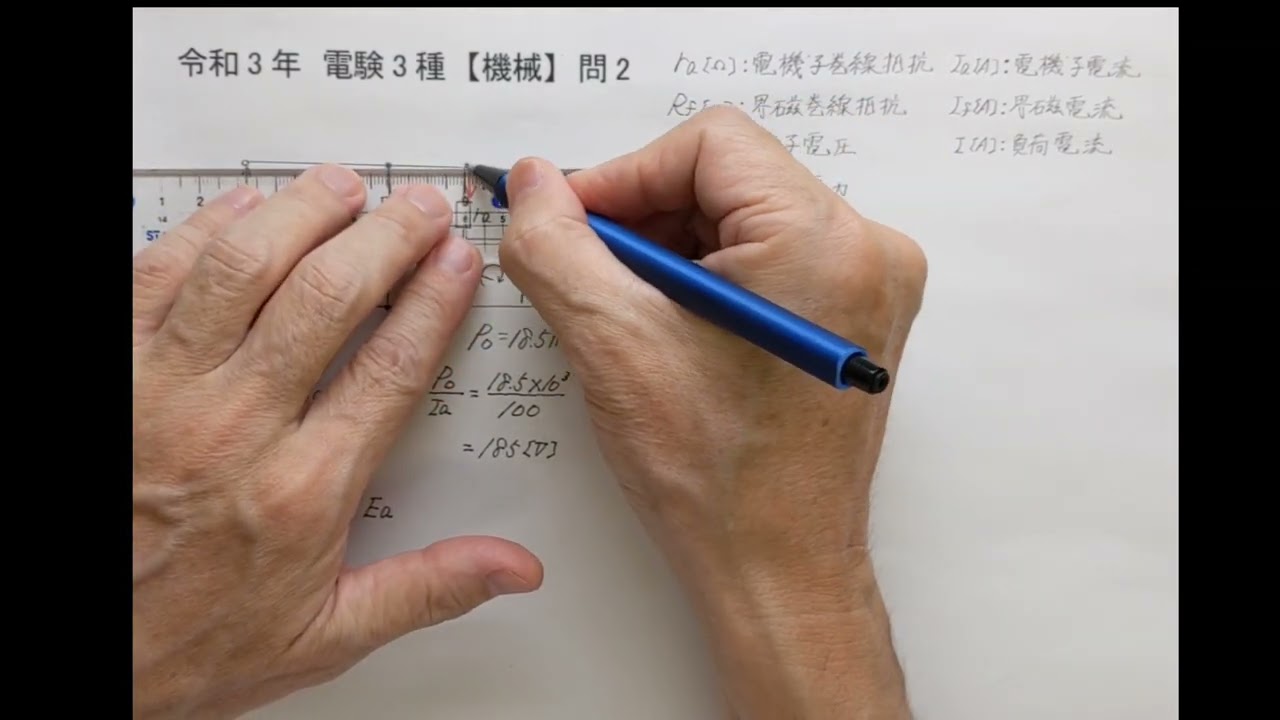 令和3年 電験3種【機械】問2
ra[Ω]:電機子巻線抵抗 Ia[A]:電機子電流
:界磁巻線抵抗 If[A]:界磁電流
子電圧 I[A]:負荷電流
力
1 2
14
ra
5
P0=18.5
P0/Ia = 18.5×10³/100
=185[V]
Ea